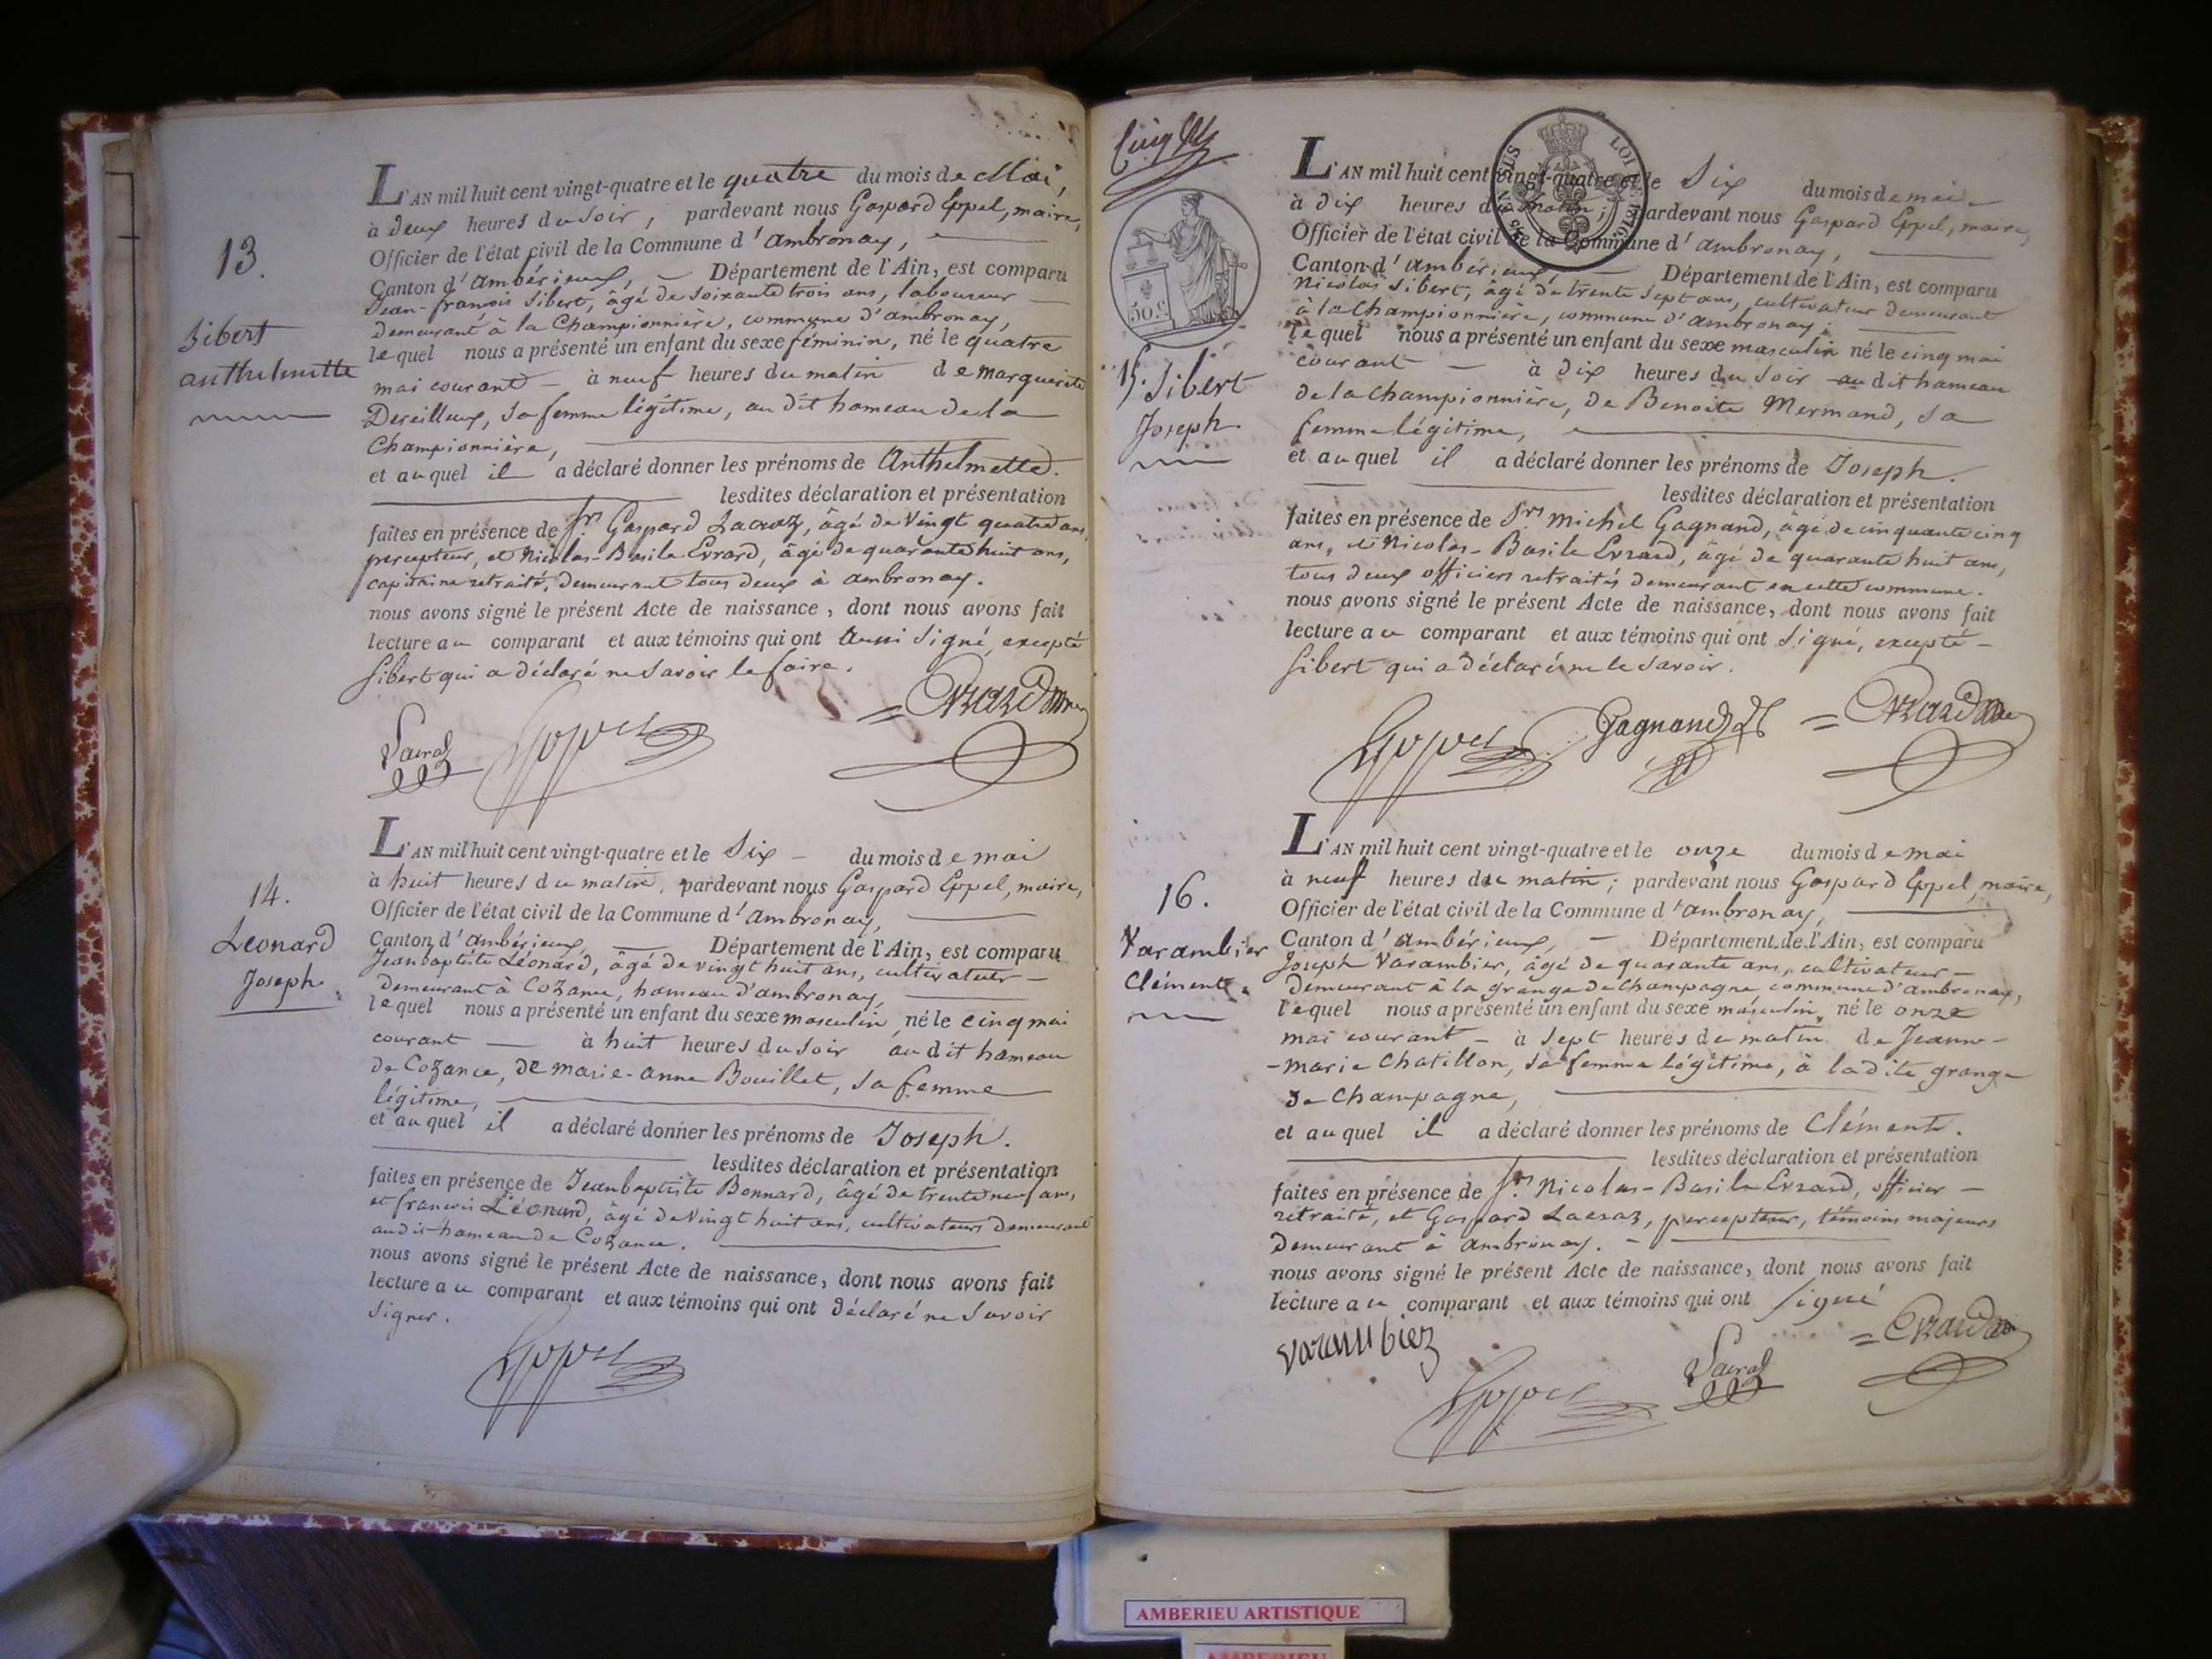 13.
Sibert
anthelmette
L'AN mil huit cent vingt-quatre et le quatre du mois de Mai,
à deux heures du soir, pardevant nous Gaspard Eppel, maire,
Officier de l'état civil de la Commune d'ambronay,
Canton d'ambérieux, Département de l'Ain, est comparu
Jean-françois Sibert, âgé de soixante trois ans, laboureur
demeurant à la Championnière, commune d'ambronay,
lequel nous a présenté un enfant du sexe féminin, né le quatre
mai courant à neuf heures du matin de marguerite
Dereilleux, sa femme légitime, au dit hameau de la
Championnière,
et auquel il a déclaré donner les prénoms de Anthelmette.
lesdites déclaration et présentation
faites en présence de Srs Gaspard Lacraz, âgé de vingt quatre ans,
percepteur, et Nicolas-Basile Evrard, âgé de quarante huit ans,
capitaine retraité, demeurant tous deux à ambronay.
nous avons signé le présent Acte de naissance, dont nous avons fait
lecture au comparant et aux témoins qui ont aussi signé, excepté
Sibert qui a déclaré ne savoir le faire.
Lacraz Eppel Evrard
14.
Leonard
Joseph.
L'AN mil huit cent vingt-quatre et le six du mois de mai
à huit heures du matin, pardevant nous Gaspard Eppel, maire,
Officier de l'état civil de la Commune d'ambronay,
Canton d'ambérieux, Département de l'Ain, est comparu
Jeanbaptiste Léonard, âgé de vingt huit ans, cultivateur
demeurant à Cozance, hameau d'ambronay,
lequel nous a présenté un enfant du sexe masculin né le cinq mai
courant à huit heures du soir au dit hameau
de Cozance, de marie-anne Bouillet, sa femme
légitime,
et auquel il a déclaré donner les prénoms de Joseph.
lesdites déclaration et présentation
faites en présence de Jeanbaptiste Bonnard, âgé de trente neuf ans,
et francois Léonard, âgé de vingt huit ans, cultivateurs demeurant
audit hameau de Cozance.
nous avons signé le présent Acte de naissance, dont nous avons fait
lecture au comparant et aux témoins qui ont déclaré ne savoir
signer.
Eppel
Cinq
50 c.
15. Sibert
Joseph.
LOI DE 1816
L'AN mil huit cent vingt-quatre et le six du mois de mai
à dix heures du matin; pardevant nous Gaspard Eppel, maire,
Officier de l'état civil de la Commune d'ambronay,
Canton d'ambérieux, Département de l'Ain, est comparu
Nicolas Sibert, âgé de trente sept ans, cultivateur demeurant
à la Championnière, commune d'ambronay,
lequel nous a présenté un enfant du sexe masculin né le cinq mai
courant à dix heures du soir au dit hameau
de la Championnière, de Benoite Mermand, sa
femme légitime,
et auquel il a déclaré donner les prénoms de Joseph.
lesdites déclaration et présentation
faites en présence de Srs Michel Gagnand, âgé de cinquante cinq
ans, et Nicolas-Basile Evrard, âgé de quarante huit ans,
tous deux officiers retraités demeurant en cette commune.
nous avons signé le présent Acte de naissance, dont nous avons fait
lecture au comparant et aux témoins qui ont signé, excepté
Sibert qui a déclaré ne le savoir.
Eppel Gagnand Evrard
16.
Varambier
Clément.
L'AN mil huit cent vingt-quatre et le onze du mois de mai
à neuf heures du matin; pardevant nous Gaspard Eppel, maire,
Officier de l'état civil de la Commune d'ambronay,
Canton d'ambérieux, Département de l'Ain, est comparu
Joseph Varambier, âgé de quarante ans, cultivateur
demeurant à la grange de Champagne commune d'ambronay,
lequel nous a présenté un enfant du sexe masculin, né le onze
mai courant à sept heures du matin de Jeanne-
-marie Chatillon, sa femme légitime, à ladite grange
de Champagne,
et auquel il a déclaré donner les prénoms de Clément.
lesdites déclaration et présentation
faites en présence de Srs Nicolas-Basile Evrard, officier
retraité, et Gaspard Lacraz, percepteur, témoins majeurs
demeurant à ambronay.
nous avons signé le présent Acte de naissance, dont nous avons fait
lecture au comparant et aux témoins qui ont signé
varambier Eppel Lacraz Evrard
AMBERIEU ARTISTIQUE
AMBERIEU